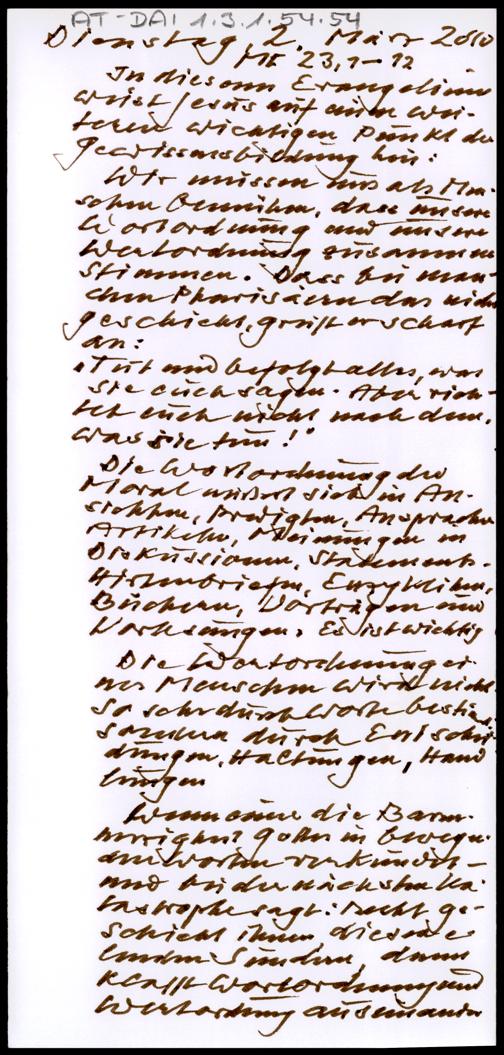 AT-DAI 1.3.1.54.54
Dienstag, 2. März 2010
Mt 23,1-12
In diesem Evangelium
weist Jesus auf einen wei-
teren wichtigen Punkt der
Gewissensbildung hin:
Wir müssen uns als Men-
schen bemühen, dass unsere
Wortordnung und unsere
Wertordnung zusammen
stimmen. Dass bei man-
chen Pharisäern das nicht
geschieht, greift er scharf
an:
"Tut und befolgt alles, was
sie euch sagen. Aber rich-
tet euch nicht nach dem,
was sie tun!"
Die Wortordnung der
Moral äußert sich in An-
sichten, Predigten, Ansprachen
Artikeln, Meinungen in
Diskussionen, Statements-
Hirtenbriefen, Enzykliken,
Büchern, Vorträgen und
Vorlesungen. Es ist wichtig
Die Wertordnung ei-
nes Menschen wird nicht
so sehr durch Worte bestimmt
sondern durch Entschei-
dungen, Haltungen, Hand
lungen
Wenn einer die Barm-
herzigkeit Gottes in bewegen-
den Worten verkündet -
und bei der nächsten Ka-
tastrophe sagt: Recht ge-
schieht ihnen diesen
Sündern, dann
klafft Wortordnung und
Wertordnung auseinander